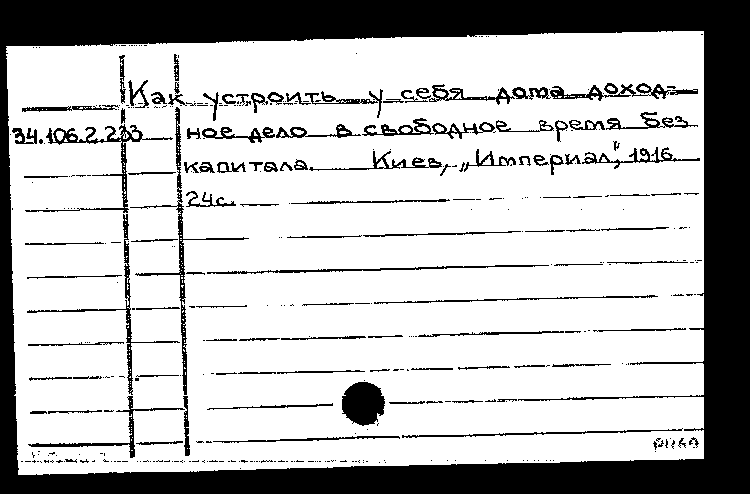 Как устроить у себя дома доход-
34.106.2.233 ное дело в свободное время без
капитала. Киев, „Империал", 1916.
24с.